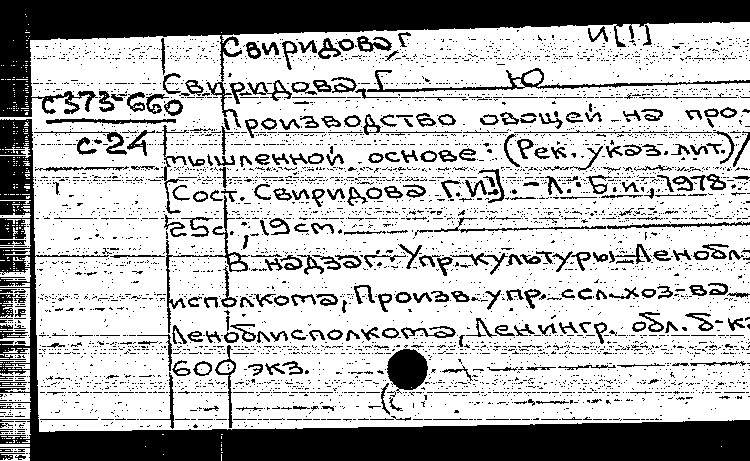 Свиридова, Г И[!]
Свиридова, Г Ю
С373-660
С-24
Производство овощей на про-
мышленной основе: (Рек. указ. лит.)/
[Сост. Свиридова Г.И!]. - Л.: Б.и., 1978.-
25с.; 19см.
В надзаг.: Упр. культуры Леноблз
исполкома, Произв. упр. сел. хоз-ва
Леноблисполкома, Ленингр. обл. б-ка
600 экз.